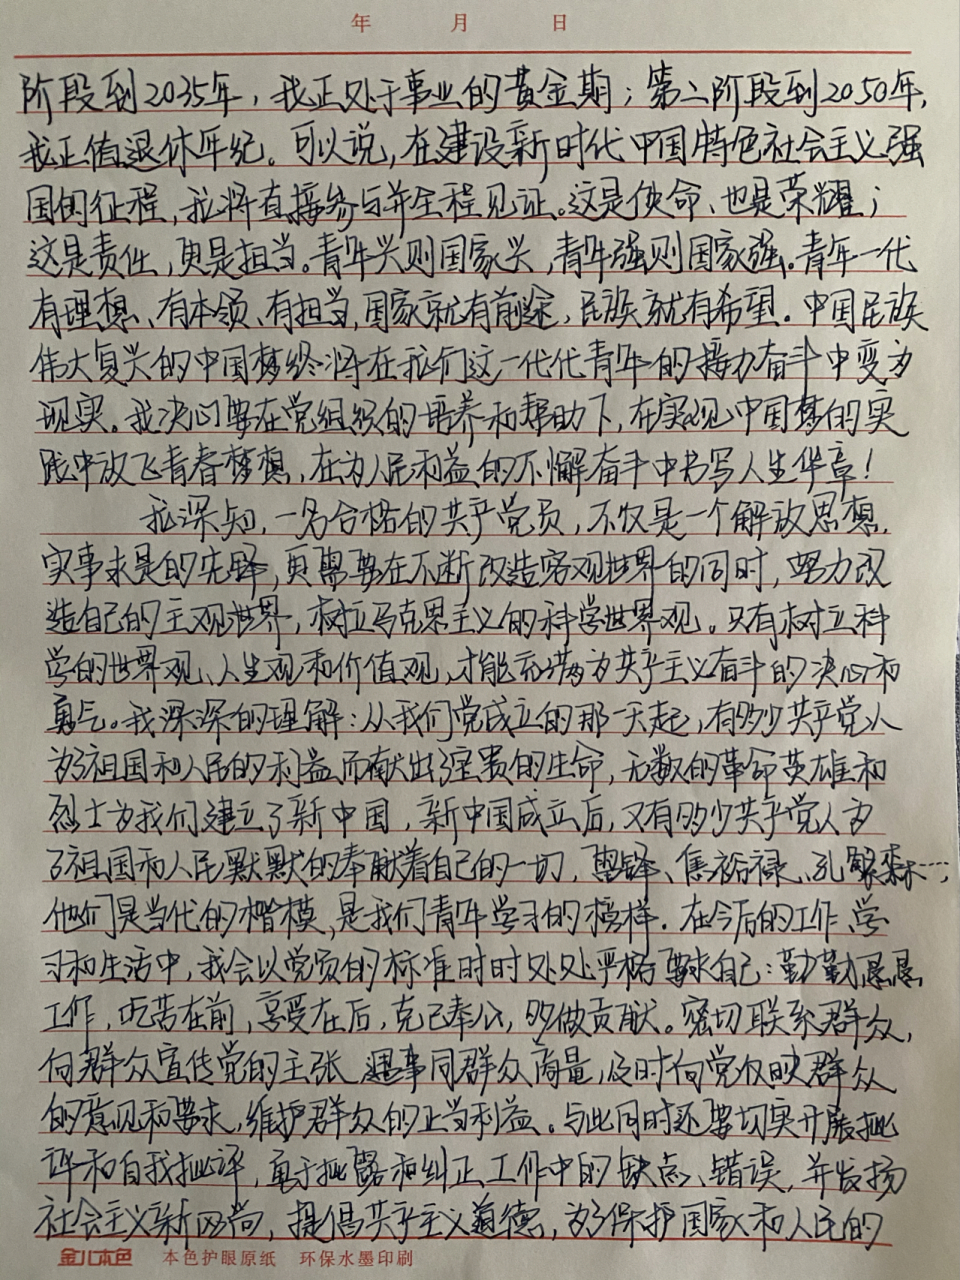 年 月 日
阶段到2035年，我正处于事业的黄金期；第二阶段到2050年，
我正值退休年纪。可以说，在建设新时代中国特色社会主义强
国的征程，我将直接参与并全程见证。这是使命、也是荣耀；
这是责任，更是担当。青年兴则国家兴，青年强则国家强。青年一代
有理想、有本领、有担当，国家就有前途，民族就有希望。中国民族
伟大复兴的中国梦终将在我们这一代代青年的接力奋斗中变为
现实。我决心要在党组织的培养和帮助下，在实现中国梦的实
践中放飞青春梦想，在为人民利益的不懈奋斗中书写人生华章！
我深知，一名合格的共产党员，不仅是一个解放思想，
实事求是的先锋，更需要在不断改造客观世界的同时，努力改
造自己的主观世界，树立马克思主义的科学世界观。只有树立科
学的世界观、人生观和价值观，才能充满为共产主义奋斗的决心和
勇气。我深深的理解：从我们党成立的那一天起，有多少共产党人
为了祖国和人民的利益而献出了宝贵的生命，无数的革命英雄和
烈士为我们建立了新中国，新中国成立后，又有多少共产党人为
了祖国和人民默默的奉献着自己的一切，雷锋、焦裕禄、孔繁森……，
他们是当代的楷模，是我们青年学习的榜样。在今后的工作、学
习和生活中，我会以党员的标准时时处处严格要求自己：勤勤恳恳
工作，吃苦在前，享受在后，克己奉公，多做贡献。密切联系群众，
向群众宣传党的主张，遇事同群众商量，及时向党反映群众
的意见和要求，维护群众的正当利益。与此同时还要切实开展批
评和自我批评，勇于批露和纠正工作中的缺点、错误，并发扬
社会主义新风尚，提倡共产主义道德，为了保护国家和人民的
金儿本色 本色护眼原纸 环保水墨印刷